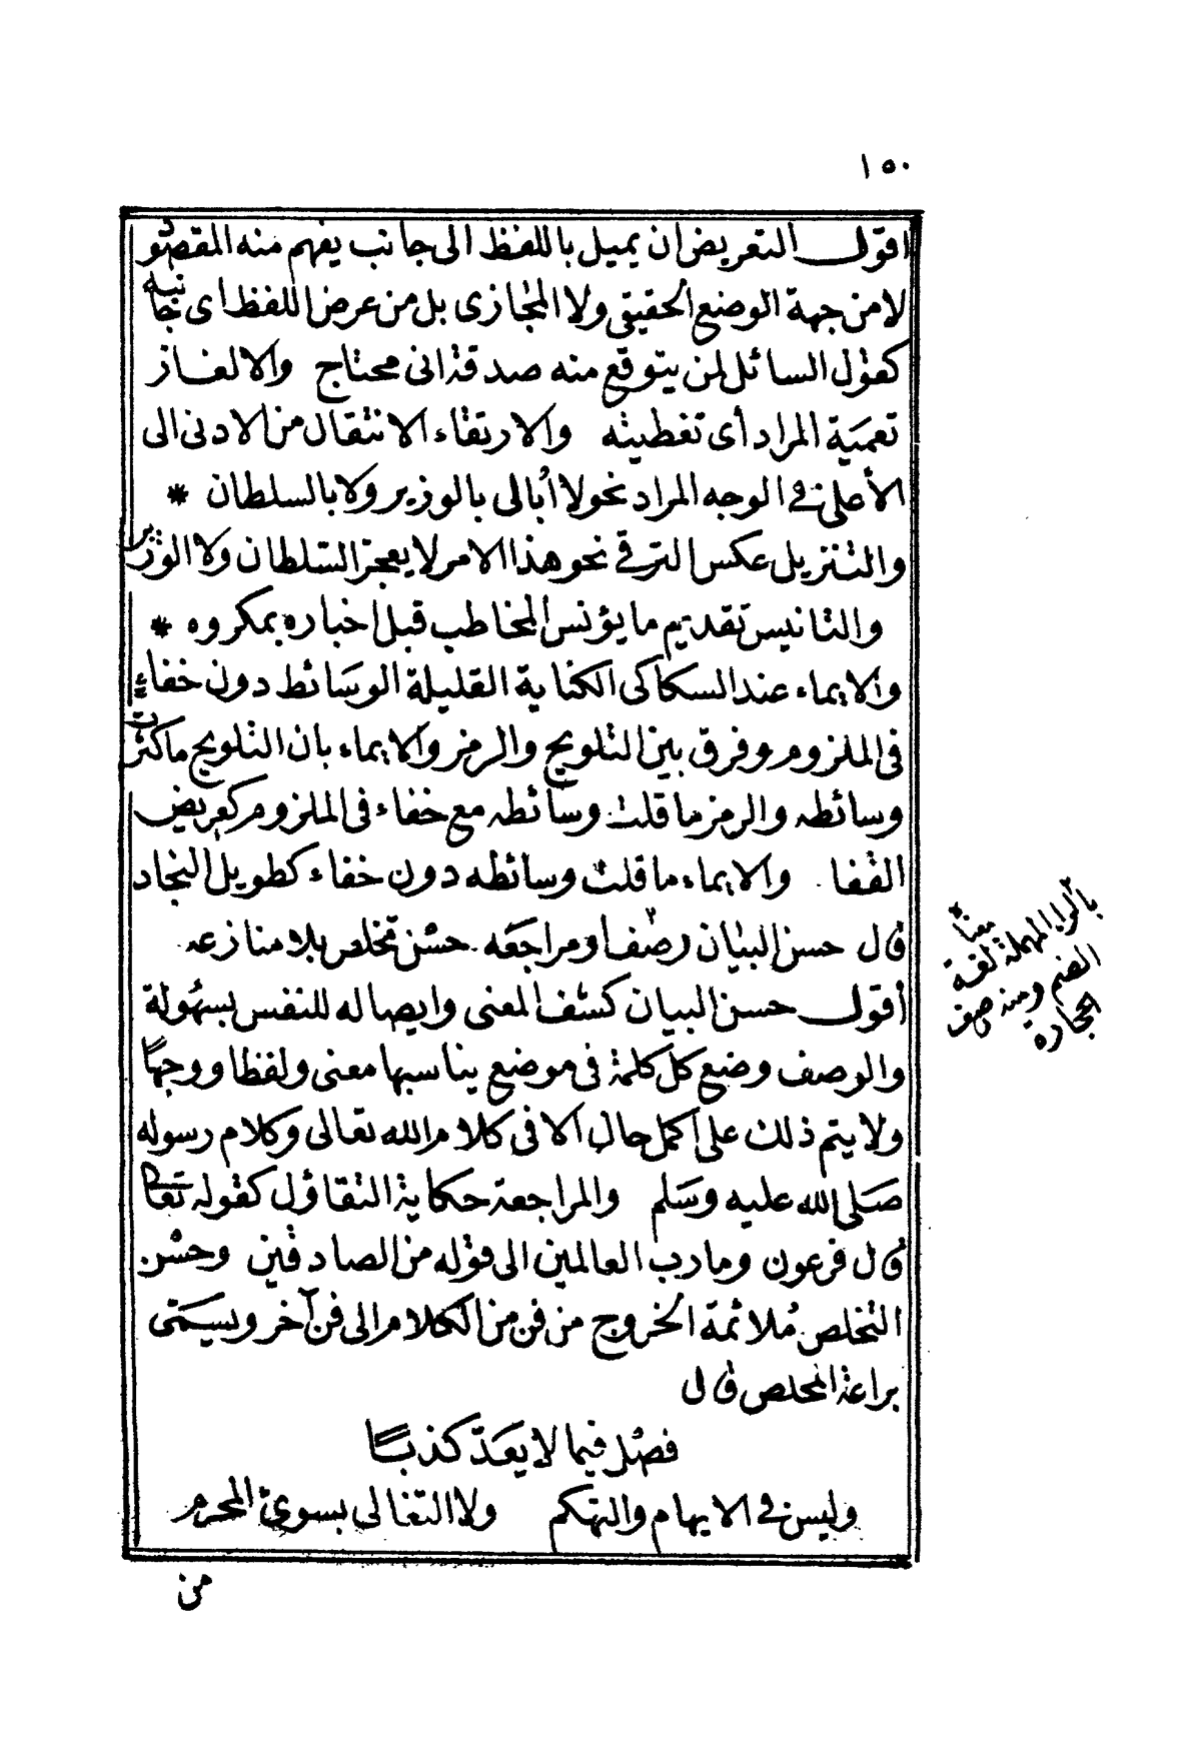 ١٥٠
اقول التعريض ان يميل باللفظ الى جانب يفهم منه المقصود
لا من جهة الوضع الحقيقى ولا المجازى بل من عرض اللفظ اى جانبه
كقول السائل لمن يتوقع منه صدقة انى محتاج والالغاز
تعمية المراد أى تغطيته والارتقاء الانتقال من الادنى الى
الأعلى فى الوجه المراد نحو لا أبالى بالوزير ولا بالسلطان *
والتنزيل عكس الترقى نحو هذا الامر لا يعجز السلطان ولا الوزير
والتانيس تقديم ما يؤنس المخاطب قبل اخباره بمكروه *
والايماء عند السكاكى الكناية القليلة الوسائط دون خفاءٍ
فى الملزوم وفرق بين التلويح والرمز والايماء بان التلويح ما كثرت
وسائطه والرمز ما قلت وسائطه مع خفاء فى الملزوم كعريض
القفا والايماء ما قلت وسائطه دون خفاء كطويل النجاد
قال حسن البيان رصف او مراجعه حسن تخلص بلا منازعه
أقول حسن البيان كشف المعنى وايصاله للنفس بسهولة
والوصف وضع كل كلمة فى موضع يناسبها معنى ولفظا ووجهًا
ولا يتم ذلك على اكمل حال الا فى كلام الله تعالى وكلام رسوله
صلى الله عليه وسلم والمراجعة حكاية التقاؤل كقوله تعالى
قال فرعون وما رب العالمين الى قوله من الصادقين وحسن
التخلص ملائمة الخروج من فن من الكلام الى فن آخر ويسمى
براعة المخلص قال
فصل فيما لا يعد كذبًا
وليس فى الايهام والتهكم ولا التغالى بسوى المحرم
من
بالرا المهملة لغة
الضم ومنه رصف
الحجاره